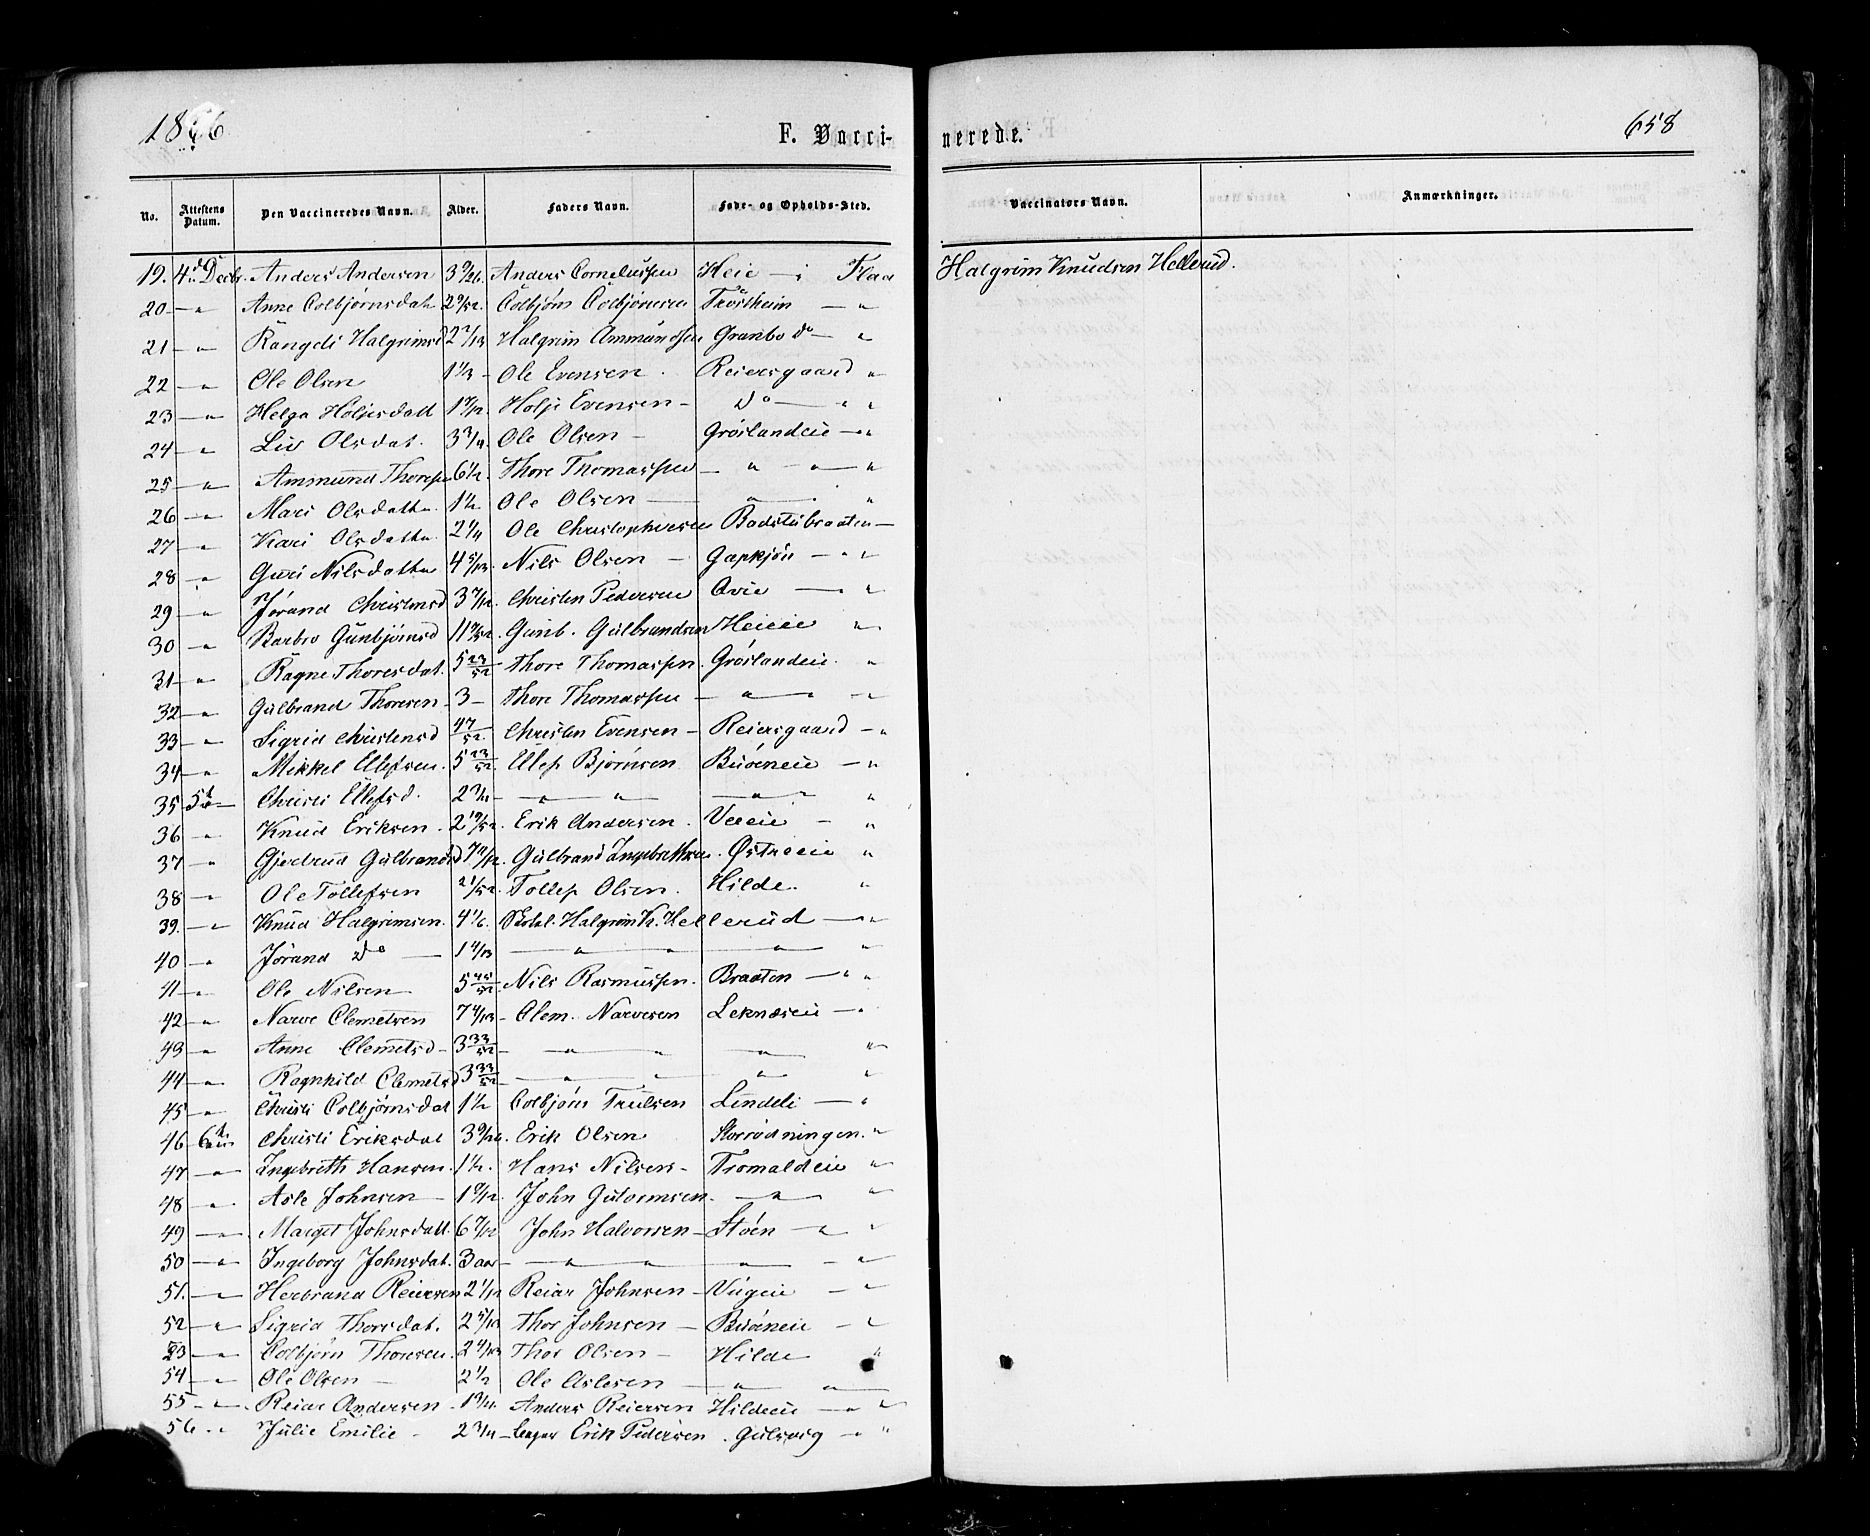 1866. F. Vacci- nerede. 658
No. Attestens Datum. Den Vaccineredes Navn. Alder. Faders Navn. Føde- og Opholds-Sted. Vaccinators Navn. Anmærkninger.
19. 4de Decbr. Anders Andersen 3 9/26. Anders Corneliussen Heie — i Flaa Halgrim Knudsen Hellerud.
20 — " Anne Colbjørnsdat. 2 9/52. Colbjørn Colbjørnsen Trostheim — "
21 — " Rangdi Halgrimsd 2 2/13 Halgrim Ammundsen Granbo do — "
22 — " Ole Olsen 1 1/3 - Ole Evensen. Reiersgaard "
23 — " Helga Holjesdatt 1 7/12. Holje Evensen - do — " "
24 — " Liv Olsdat. 3 3/4. Ole Olsen - Gröslandeie — "
25 — " Ammund Thoresen 6 1/2. Thore Thomassen — " — " — "
26 — " Mari Olsdatter 1 1/2 Ole Olsen — " "
27 — " Kari Olsdatter 2 1/4 Ole Christophersen Badstubraaten —
28 — " Guri Nilsdatter 4 5/13. Nils Olsen — Gapkjön — " "
29 — " Jörand Christensd 3 7/12. Christen Pedersen Avie — "
30 — " Barbro Gunbjörnsd 11 9/52. Gunb. Gulbrandsen Heieie "
31 — " Ragne Thoresdat. 5 23/52 Thore Thomassen. Gröslandeie. "
32 — " Gulbrand Thoresen 3 - Thore Thomassen — " " — "
33 — " Sigrid Christensd 47/52. Christen Evensen - Reiersgaard - "
34 — " Mikkel Ellefsen. 5 23/52. Ellef Björnsen Buöeneie — "
35 5te — Christi Ellefsd. 2 3/4. — " " — " "
36 — " Knud Eriksen. 2 19/52. Erik Andersen. Veeie — "
37 — " Gjertrud Gulbrandsd 7 11/12. Gulbrand Ingebrethsen. Østreeie "
38 — " Ole Tollefsen 21/52. Tollef Olsen. Hilde. "
39. — " Knud Halgrimsen. 4 1/6. Skohol. Halgrim K. Hellerud — "
40 — " Jörand do — 1 4/13 — " " — " "
41 — " Ole Nilsen 5 45/52 Nils Rasmussen. Braaten — " "
42 — " Narve Clemetsen 7 4/13 - Clem. Narvesen Leknæseie — "
43 — " Anne Clemetsd - 3 33/52 — " " " "
44 — " Ragnhild Clemetsd 3 33/52 — " " " "
45 — " Christi Colbjörnsdat 1 1/2 Colbjörn Trulsen Lindeli — "
46 6te Christi Eriksdat 3 9/26. Erik Olsen Storrödningen. "
47 — " Ingebreth Hansen. 1 1/2. Hans Nilsen - Tromaldeie "
48 — " Asle Johnsen — 1 9/12. John Gulormsen. — " "
49 — " Margit Johnsdatt. 6 7/12 John Halvorsen - Stöen — " "
50 — " Ingeborg Johnsdat. 3 aar — " " " — "
51. — " Herbrand Reiersen 2 1/12 Reiar Johnsen - Vügeie — "
52 — " Sigrid Thorsdat. 2 5/13 Thor Johnsen — Buöeneie — "
53 — " Colbjörn Thoresen. 2 4/13 Thor Olsen — Hilde "
54 — " Ole Olsen — 2 1/2 Ole Aslesen — " "
55 — " Reiar Andersen - 1 3/4. Anders Reiersen Hildeeie — " "
56 " Julie Emilie - 2 3/4 - Erik Pedersen. Gulsvig — " "